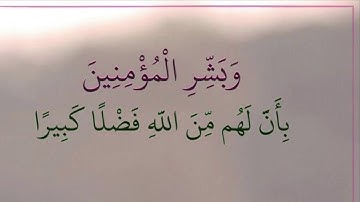 وَبَشِّرِ الْمُؤْمِنِينَ
بِأَنَّ لَهُم مِّنَ اللَّهِ فَضْلًا كَبِيرًا